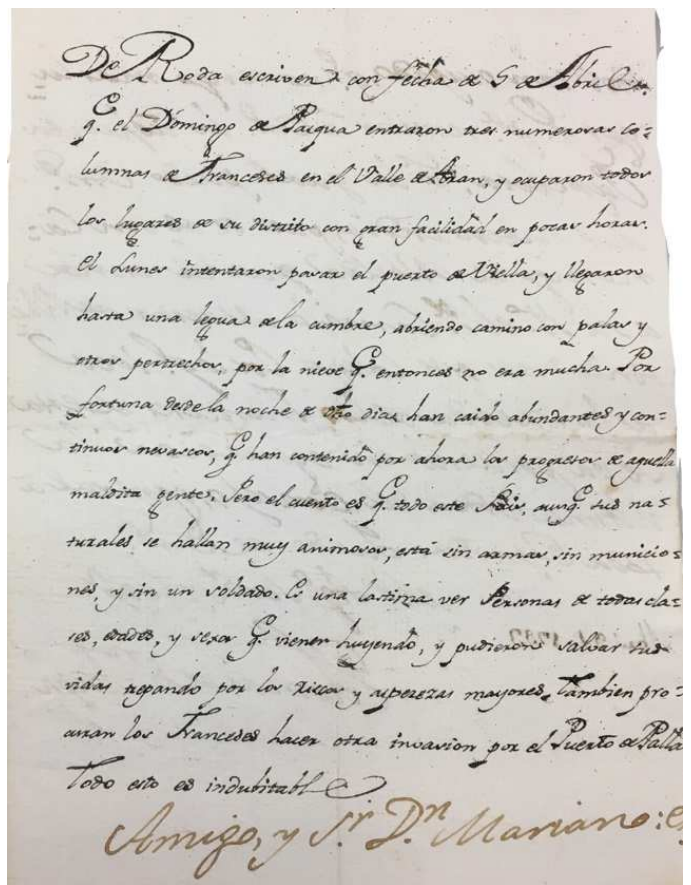 De Roda escriven con fecha de 5 de Abril
q. el Domingo de Pasqua entraron tres numerosas co=
lumnas de Franceses en el Valle de Aran, y ocuparon todos
los lugares de su distrito con gran facilidad en pocas horas.
El Lunes intentaron pasar el puerto de Viella, y llegaron
hasta una legua de la cumbre, abriendo camino con palas y
otros pertrechos, por la nieve q. entonces no era mucha. Por
fortuna desde la noche de dho dia, han caido abundantes y con=
tinuos nevascos, q. han contenido por ahora los progresos de aquella
maldita gente. Pero el cuento es q. todo este Pais, aunq. sus na=
turales se hallan muy animosos, está sin armas, sin municio=
nes, y sin un soldado. Es una lastima ver Personas de todas cla=
ses, edades, y sexos q. vienen huyendo, y pudieron salvar sus
vidas trepando por los riscos y asperezas mayores. Tambien pro=
curan los Franceses hacer otra invasion por el Puerto de Pallas
Todo esto es indubitable
Amigo, y Sr. Dn Mariano: